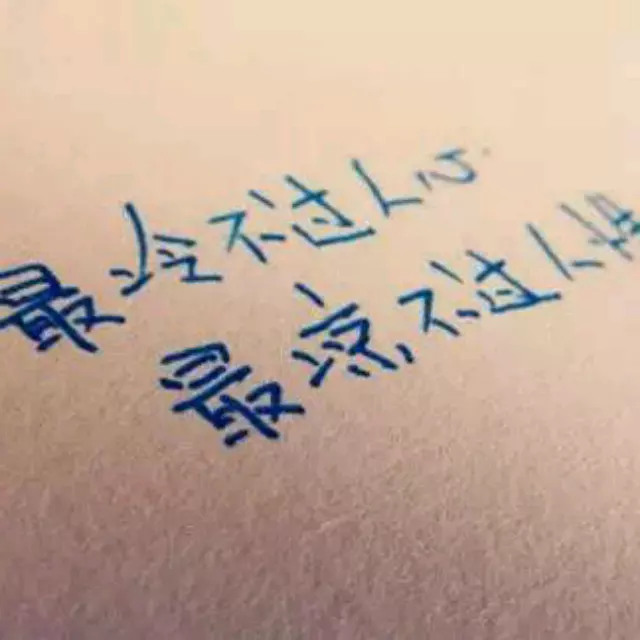 最冷不过人心.
最凉不过人性